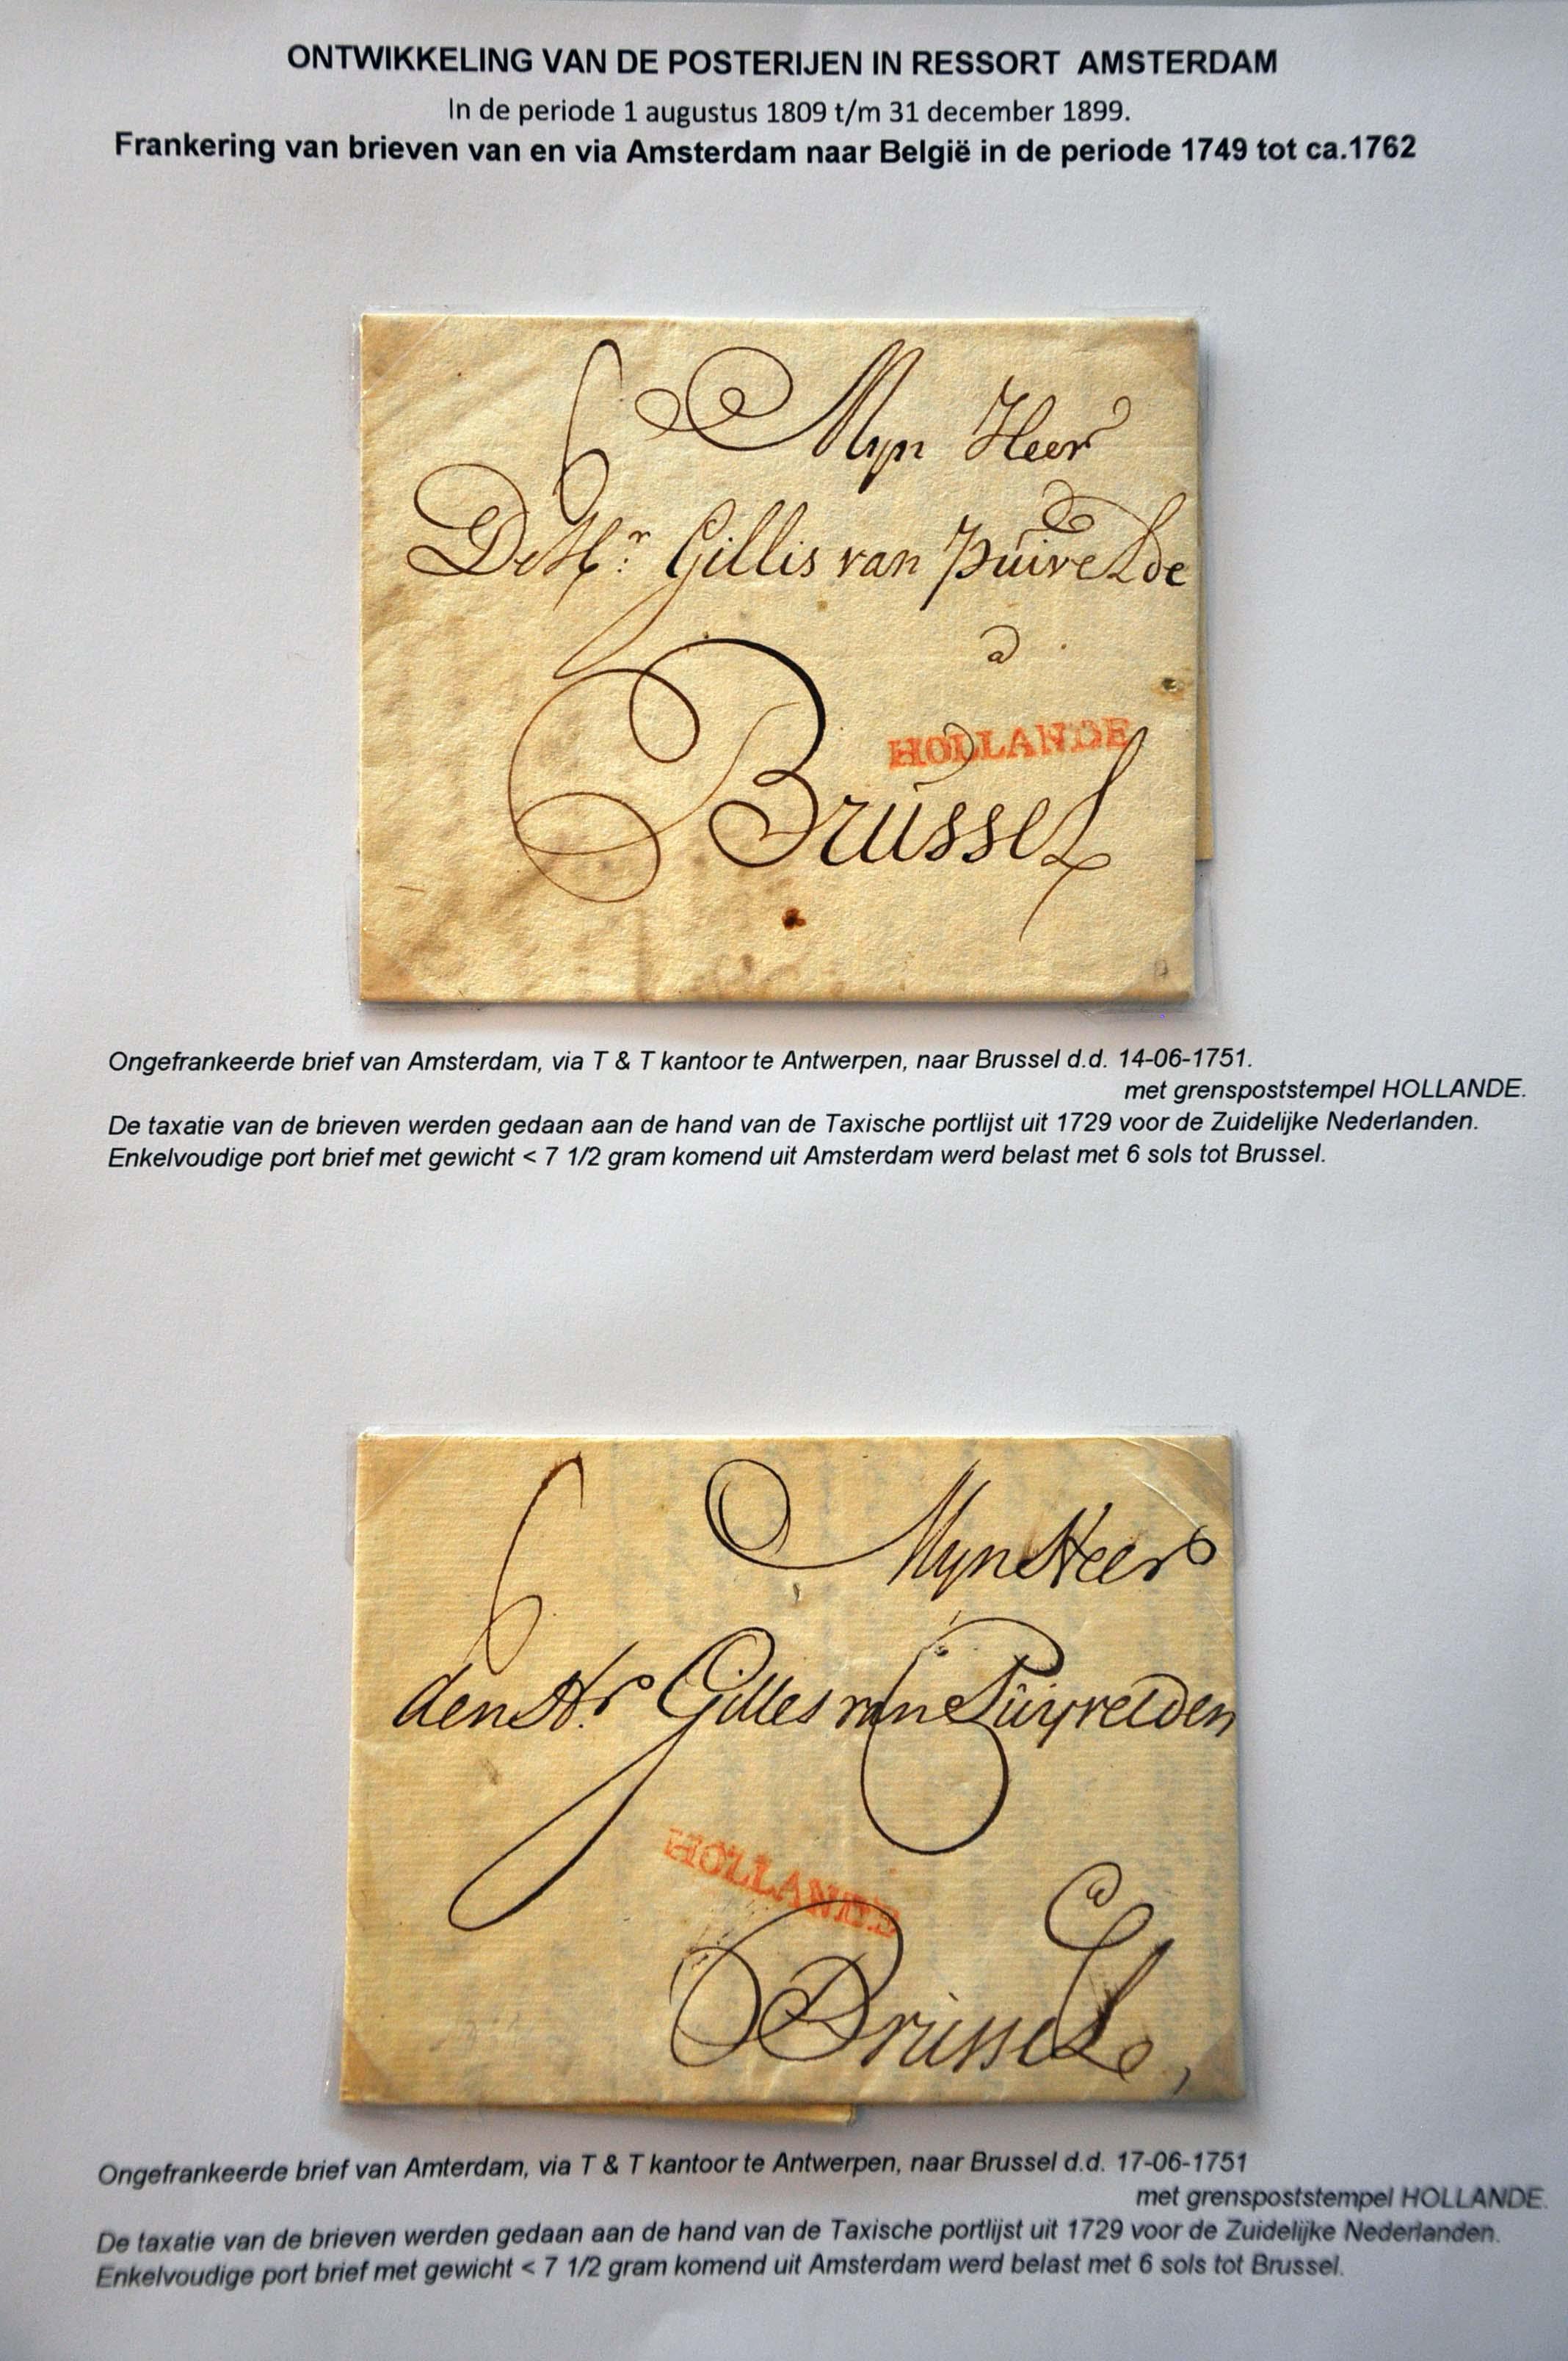 ONTWIKKELING VAN DE POSTERIJEN IN RESSORT AMSTERDAM
In de periode 1 augustus 1809 t/m 31 december 1899.
Frankering van brieven van en via Amsterdam naar België in de periode 1749 tot ca.1762
6 Mijn Heer
De Hr: Gillis van Puivelde
a
HOLLANDE
Brussel
Ongefrankeerde brief van Amsterdam, via T & T kantoor te Antwerpen, naar Brussel d.d. 14-06-1751.
met grenspoststempel HOLLANDE.
De taxatie van de brieven werden gedaan aan de hand van de Taxische portlijst uit 1729 voor de Zuidelijke Nederlanden.
Enkelvoudige port brief met gewicht < 7 1/2 gram komend uit Amsterdam werd belast met 6 sols tot Brussel.
6 Mijn Heer
den Hr. Gilles van Puijvelden
HOLLANDE
a
Brussel,
Ongefrankeerde brief van Amterdam, via T & T kantoor te Antwerpen, naar Brussel d.d. 17-06-1751
met grenspoststempel HOLLANDE.
De taxatie van de brieven werden gedaan aan de hand van de Taxische portlijst uit 1729 voor de Zuidelijke Nederlanden.
Enkelvoudige port brief met gewicht < 7 1/2 gram komend uit Amsterdam werd belast met 6 sols tot Brussel.